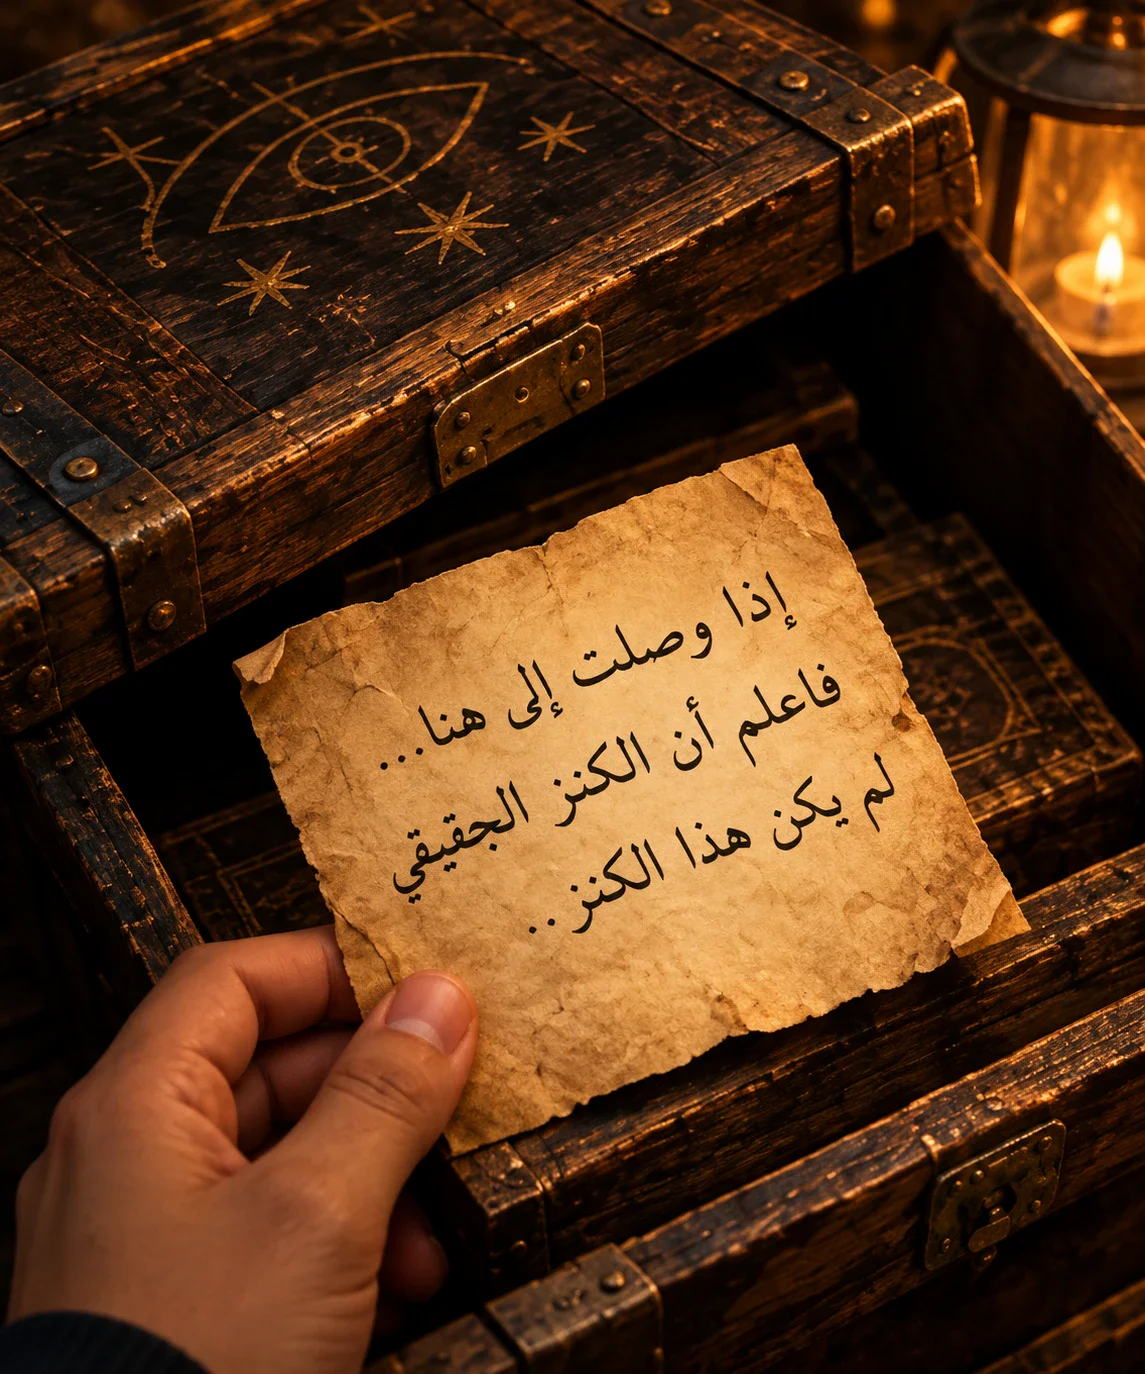 إذا وصلت إلى هنا...
فاعلم أن الكنز الجقيقي
لم يكن هذا الكنز..